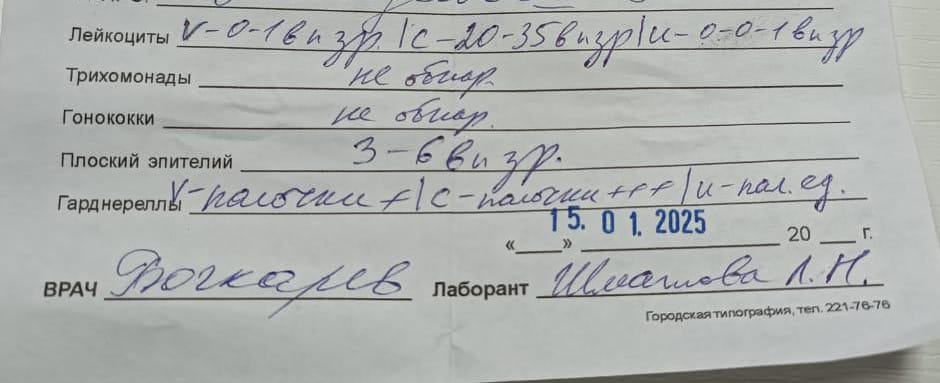 Лейкоциты V-0-1 в п зр. | С-20-35 в п зр | u-0-0-1 в п зр
Трихомонады не обнар.
Гонококки не обнар.
Плоский эпителий 3-6 в п зр.
Гарднереллы V-палочки + | С-палочки +++ | u-пал. ед.
« » 15. 01. 2025 20 г.
ВРАЧ Бочкарев Лаборант Л. Н.
Городская типография, тел. 221-76-76